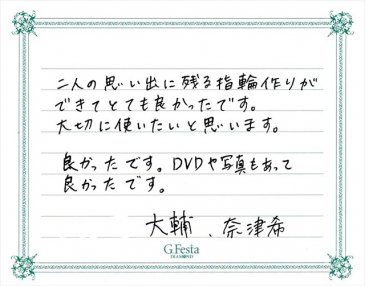 二人の思い出に残る指輪作りが
できてとても良かったです。
大切に使いたいと思います。
良かったです。DVDや写真もあって
良かったです。
大輔、奈津希
G.Festa
DIAMOND